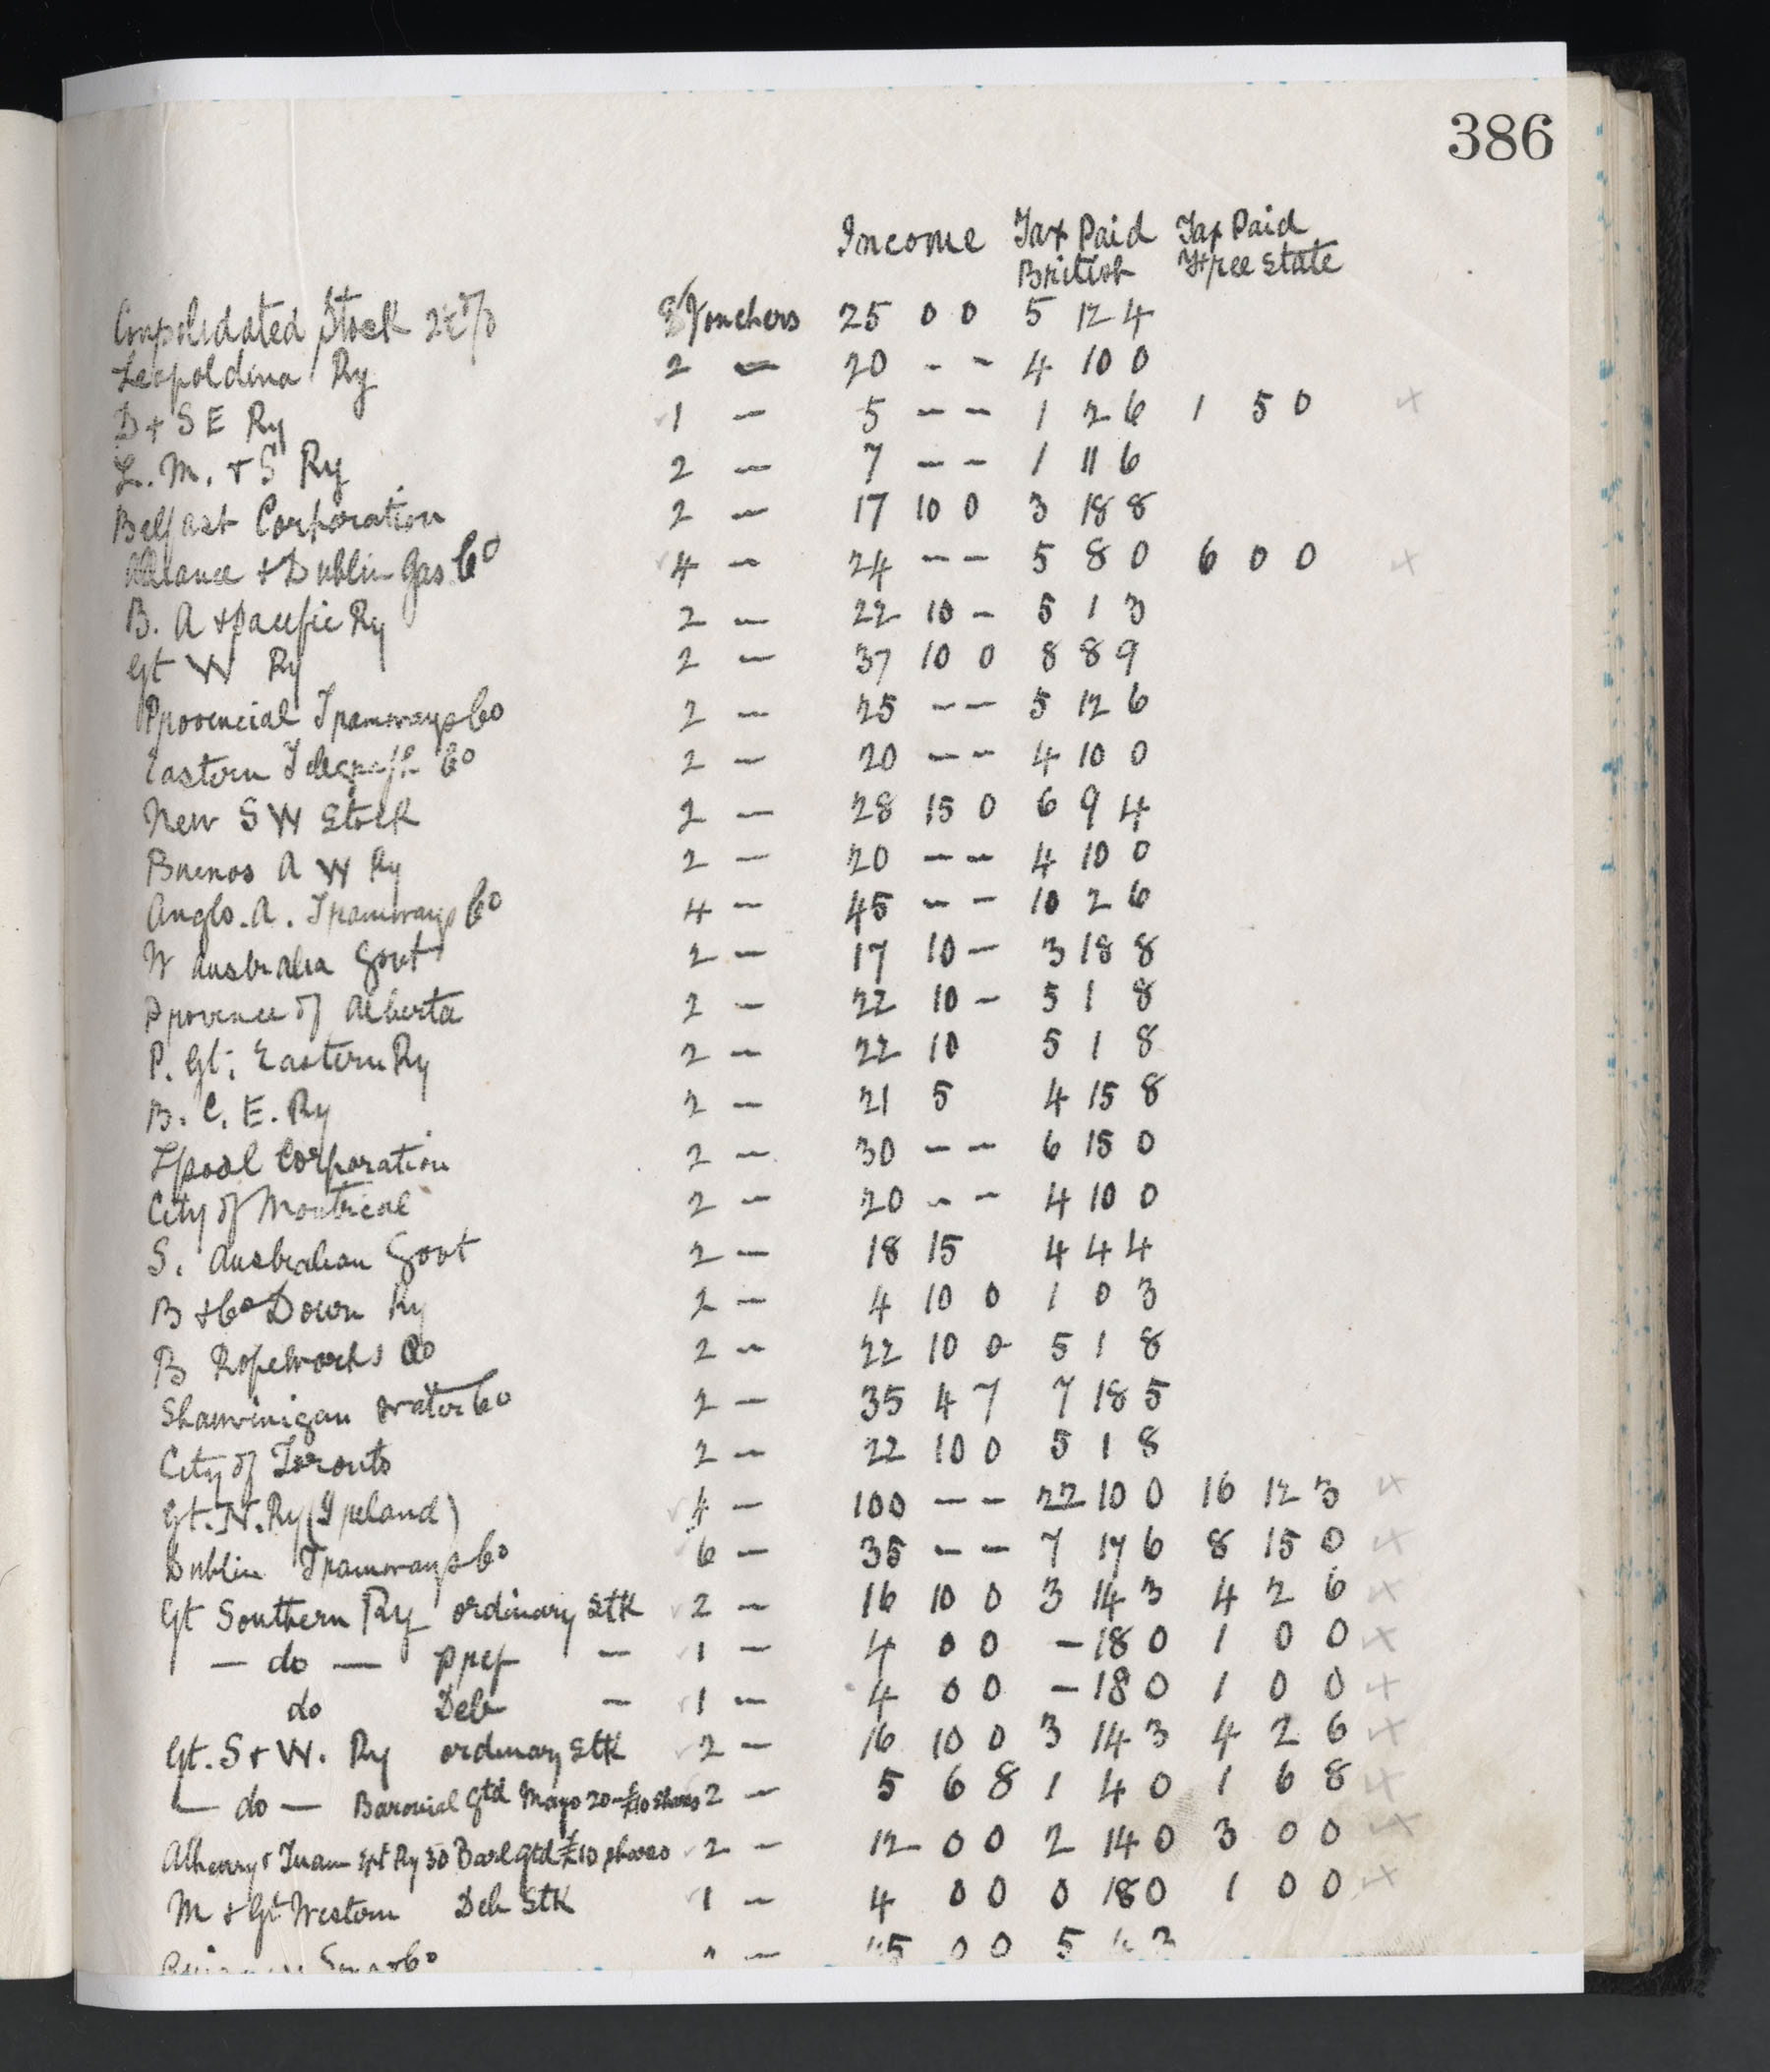 386
Income Tax Paid Tax Paid
British Free State
Consolidated Stock 2½% Vouchers 25 0 0 5 12 4
Leopoldina Ry 2 — 20 - - 4 10 0
D + S E Ry 1 — 5 - - 1 2 6 1 5 0 x
L. M. + S Ry 2 — 7 - - 1 11 6
Belfast Corporation 2 — 17 10 0 3 18 8
Alliance + Dublin Gas Co 4 — 24 - - 5 8 0 6 0 0 x
B. A + Pacific Ry 2 — 22 10 - 5 1 3
Gt W Ry 2 — 37 10 0 8 8 9
Provincial Tramways Co 2 — 25 - - 5 12 6
Eastern Telegraph Co 2 — 20 - - 4 10 0
New S W Stock 2 — 28 15 0 6 9 4
Buenos A W Ry 2 — 20 - - 4 10 0
Anglo. A. Tramways Co 4 — 45 - - 10 2 6
W Australia Govt 2 — 17 10 - 3 18 8
Province of Alberta 2 — 22 10 - 5 1 8
P. Gt. Eastern Ry 2 — 22 10 5 1 8
B. C. E. Ry 2 — 21 5 4 15 8
Lpool Corporation 2 — 30 - - 6 15 0
City of Montreal 2 — 20 - - 4 10 0
S. Australian Govt 2 — 18 15 4 4 4
B + Co Down Ry 2 — 4 10 0 1 0 3
B Ropeworks Co 2 — 22 10 0 5 1 8
Shawinigan Water Co 2 — 35 4 7 7 18 5
City of Toronto 2 — 22 10 0 5 1 8
Gt. N. Ry (Ireland) 4 — 100 - - 22 10 0 16 12 3 x
Dublin Tramways Co 6 — 35 - - 7 17 6 8 15 0 x
Gt Southern Ry ordinary Stk 2 — 16 10 0 3 14 3 4 2 6 x
— do — Pref — 1 — 4 0 0 - 18 0 1 0 0 x
do Deb — 1 — 4 0 0 - 18 0 1 0 0 x
Gt. S + W. Ry ordinary Stk 2 — 16 10 0 3 14 3 4 2 6 x
— do — Baronial Gtd Mayo 20 - £10 Shares 2 — 5 6 8 1 4 0 1 6 8 x
Athenry + Tuam Ext Ry 30 Barl gtd £10 shares 2 — 12 0 0 2 14 0 3 0 0 x
M + Gt Western Deb Stk 1 — 4 0 0 0 18 0 1 0 0 x
0 0 5